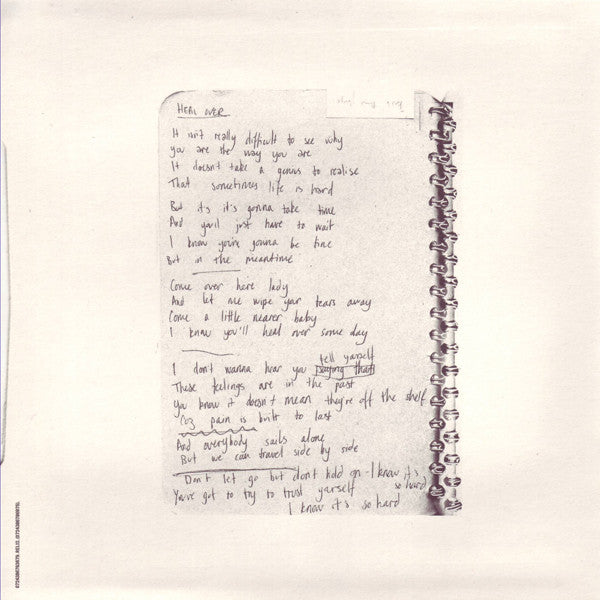 HEAL OVER
It isn't really difficult to see why
you are the way you are
It doesn't take a genius to realise
That sometimes life is hard
But it's it's gonna take time
And you'll just have to wait
I know you're gonna be fine
But in the meantime
Come over here lady
And let me wipe your tears away
Come a little nearer baby
I know you'll heal over some day
tell yourself
I don't wanna hear you saying that
These feelings are in the past
You know it doesn't mean they're off the shelf
Cuz pain is built to last
And everybody sails alone
But we can travel side by side
Don't let go but don't hold on - I know it's
so hard
You've got to try to trust yourself
I know it's so hard